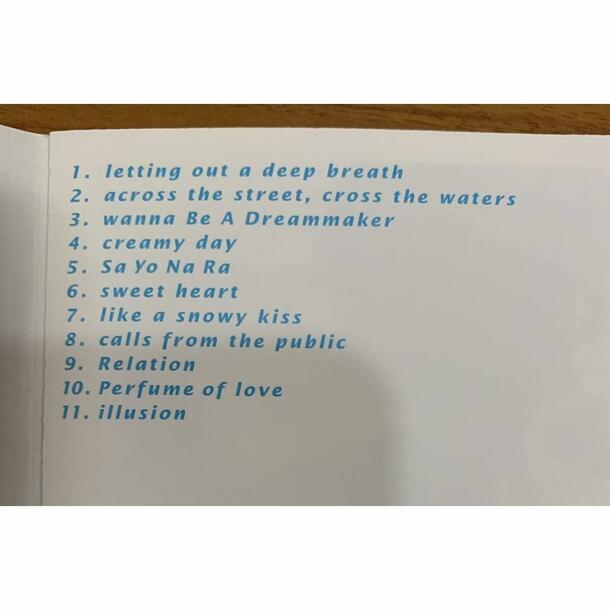 1. letting out a deep breath
2. across the street, cross the waters
3. wanna Be A Dreammaker
4. creamy day
5. Sa Yo Na Ra
6. sweet heart
7. like a snowy kiss
8. calls from the public
9. Relation
10. Perfume of love
11. illusion